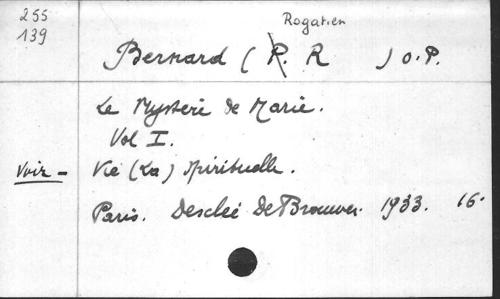 255
139
Rogatien
Bernard ( P. R ) O.P.
Le Mystère de Marie.
Vol I.
Voir - Vie (La) Spirituelle.
Paris. Desclée De Brouwer. 1933. 16°